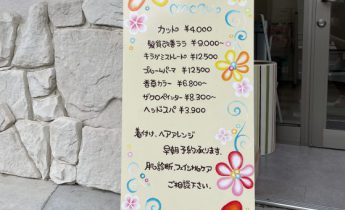 menu
カット ¥4,000
髪質改善ララ ¥9,000〜
キラリミストレート ¥12500
プルームパーマ ¥12500
香草カラー ¥6,800〜
ザクロペインター ¥8,300〜
ヘッドスパ ¥3,900
着付け、ヘアアレンジ
早朝予約承ります。
肌診断、フェイシャルケア
ご相談下さい。